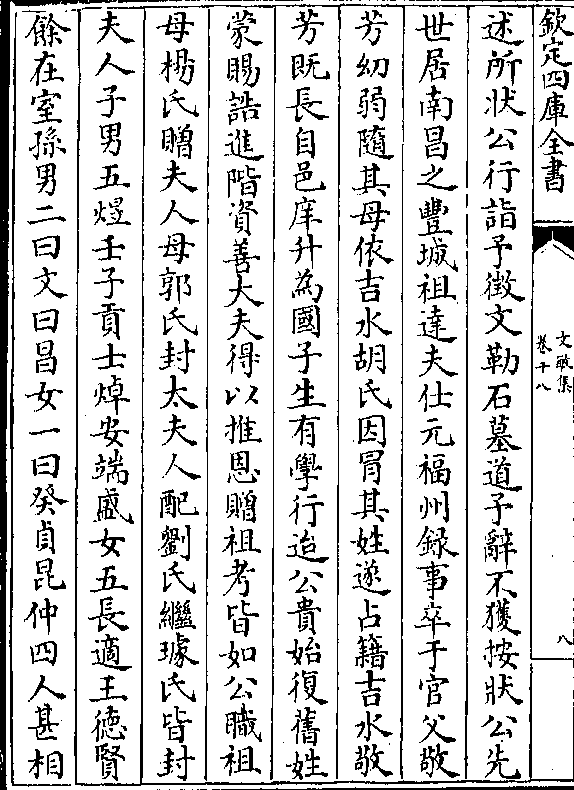 欽定四庫全書
文敏集
卷十八
八
述所狀公行詣予徵文勒石墓道予辭不獲按狀公先
世居南昌之豐城祖達夫仕元福州録事卒于官父敬
芳幼弱隨其母依吉水胡氏因冐其姓遂占籍吉水敬
芳既長自邑庠升為國子生有學行迨公貴始復舊姓
蒙賜誥進階資善大夫得以推恩贈祖考皆如公職祖
母楊氏贈夫人母郭氏封太夫人配劉氏繼璩氏皆封
夫人子男五煜壬子貢士焯安端盛女五長適王徳賢
餘在室孫男二曰文曰昌女一曰癸貞昆仲四人甚相